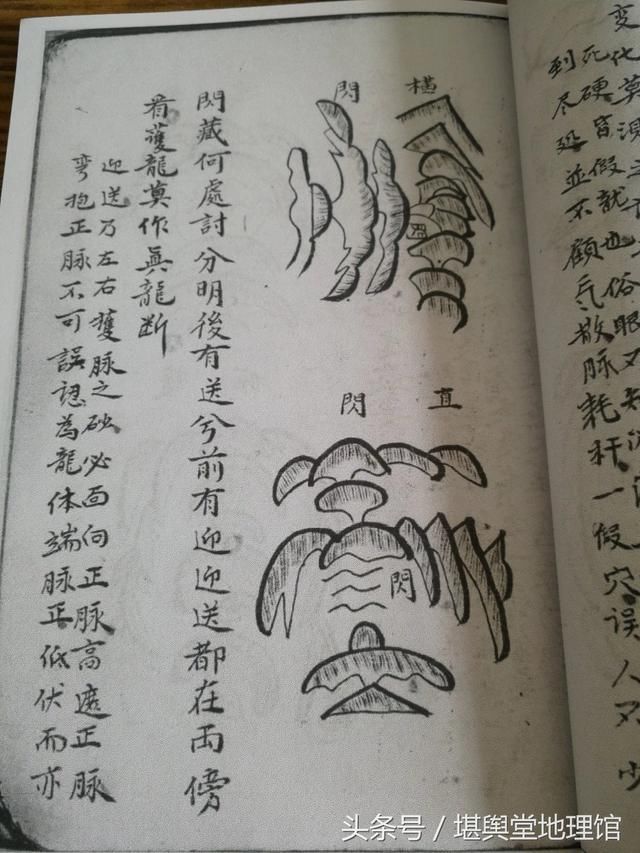 变化莫
死硬皆假就也俗眼又
到尽並不顧气散脉耗扦一假穴误人不少
橫閃
閃
直閃
閃
閃藏何處討分明後有送兮前有迎迎送都在両傍
看護龍莫作真龍断
迎送乃左右護脉之砂必面向正脉高遮正脉
弯抱正脉不可誤認為龍体端脉正低伏而亦
头条号 / 堪舆堂地理馆